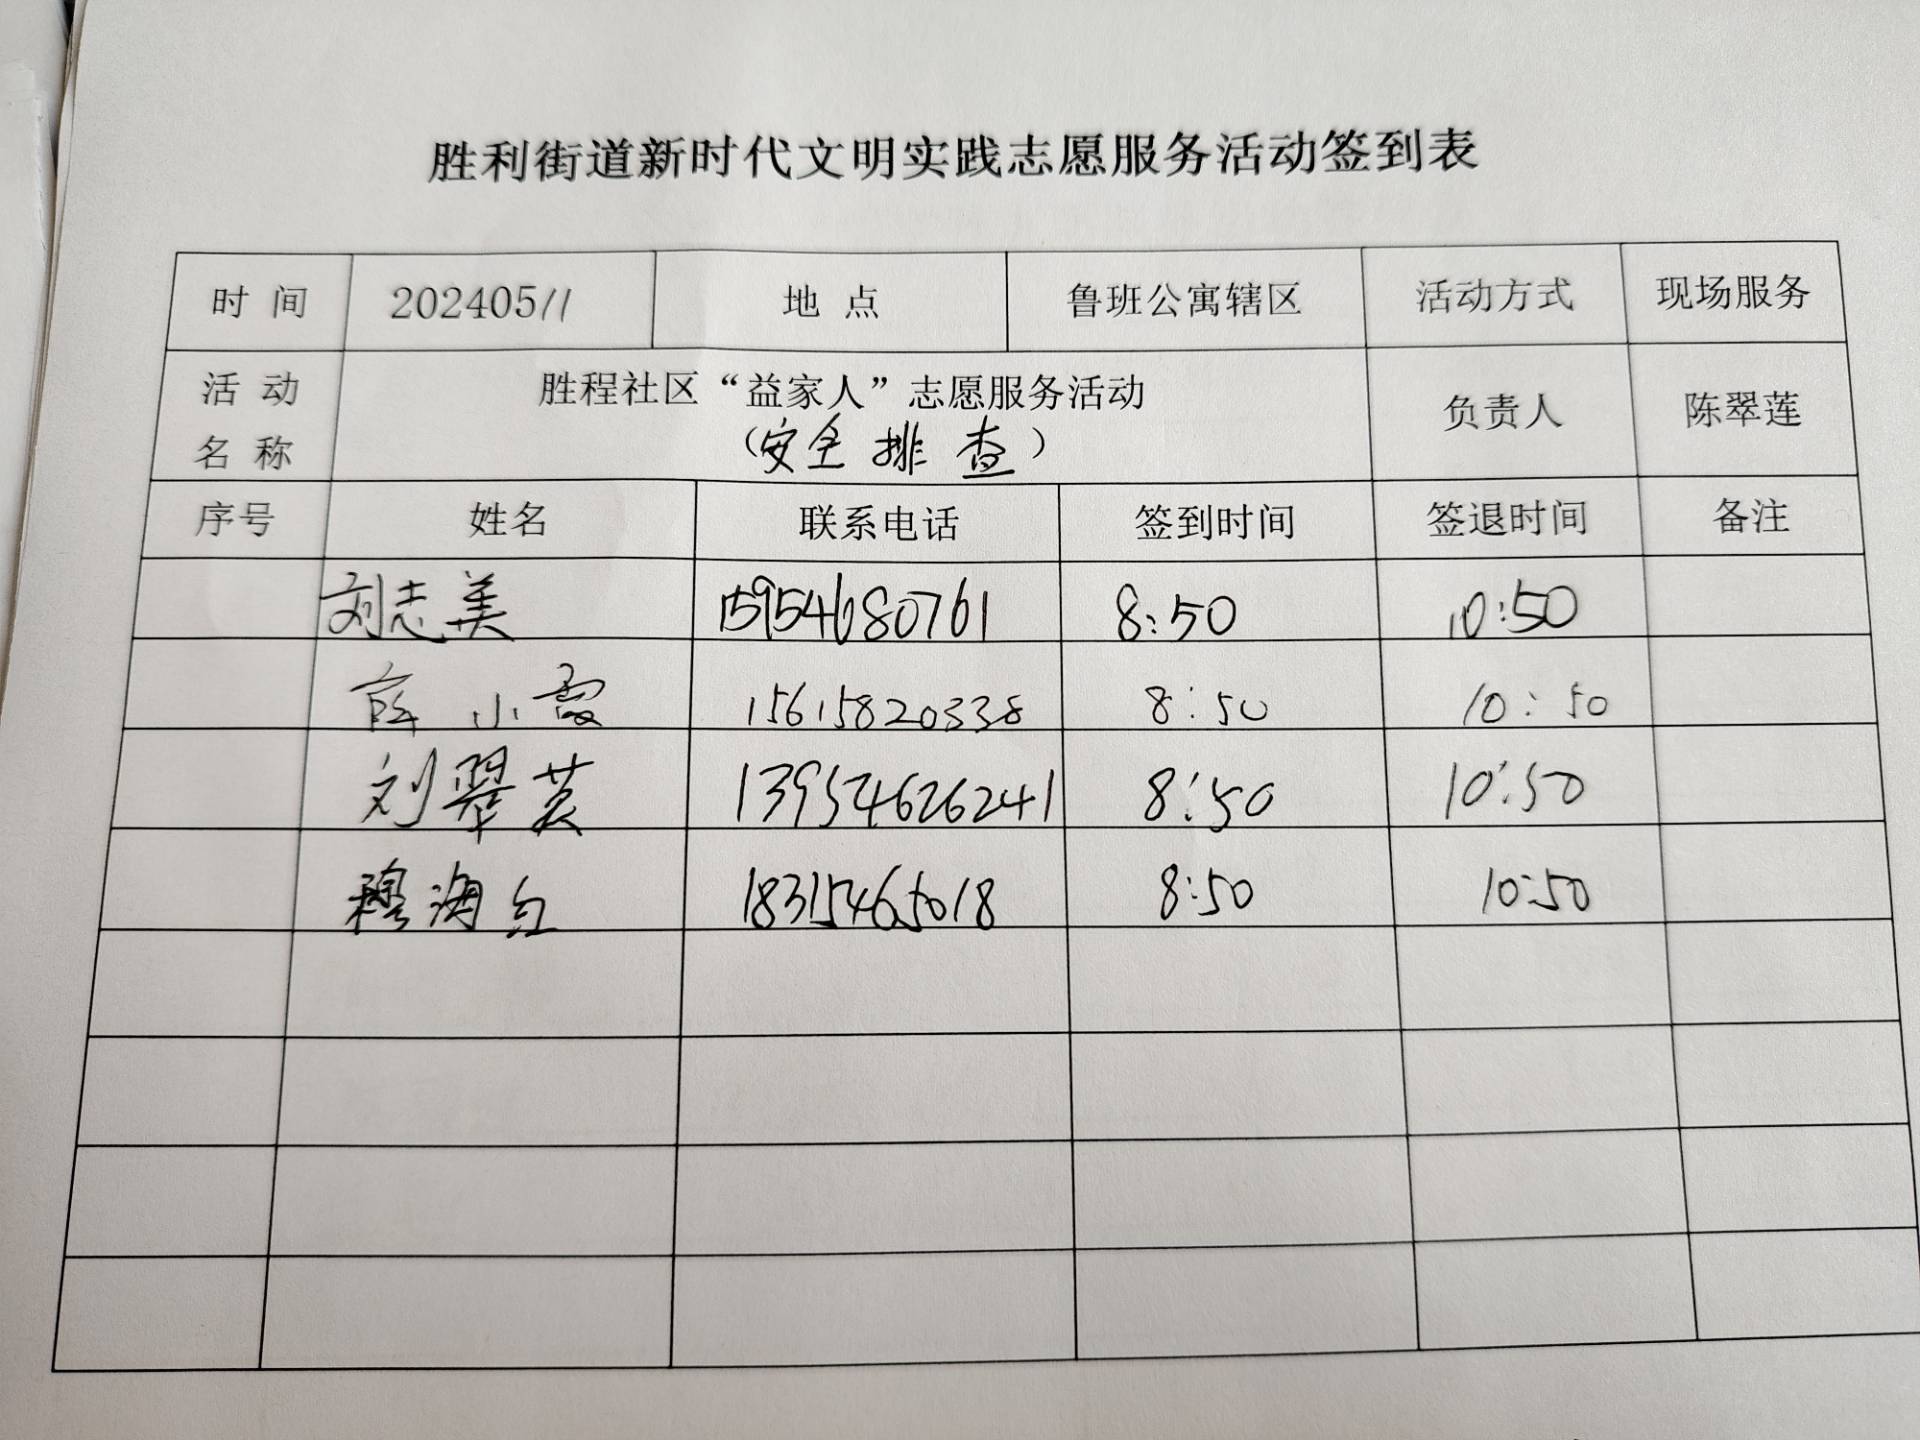 胜利街道新时代文明实践志愿服务活动签到表
时 间 20240511 地 点 鲁班公寓辖区 活动方式 现场服务
活 动 名 称 胜程社区“益家人”志愿服务活动 负责人 陈翠莲
（安全排查）
序号 姓名 联系电话 签到时间 签退时间 备注
刘志美 15954680761 8:50 10:50
薛小霞 15615820338 8:50 10:50
刘翠芸 13954626241 8:50 10:50
穆海红 18315465018 8:50 10:50